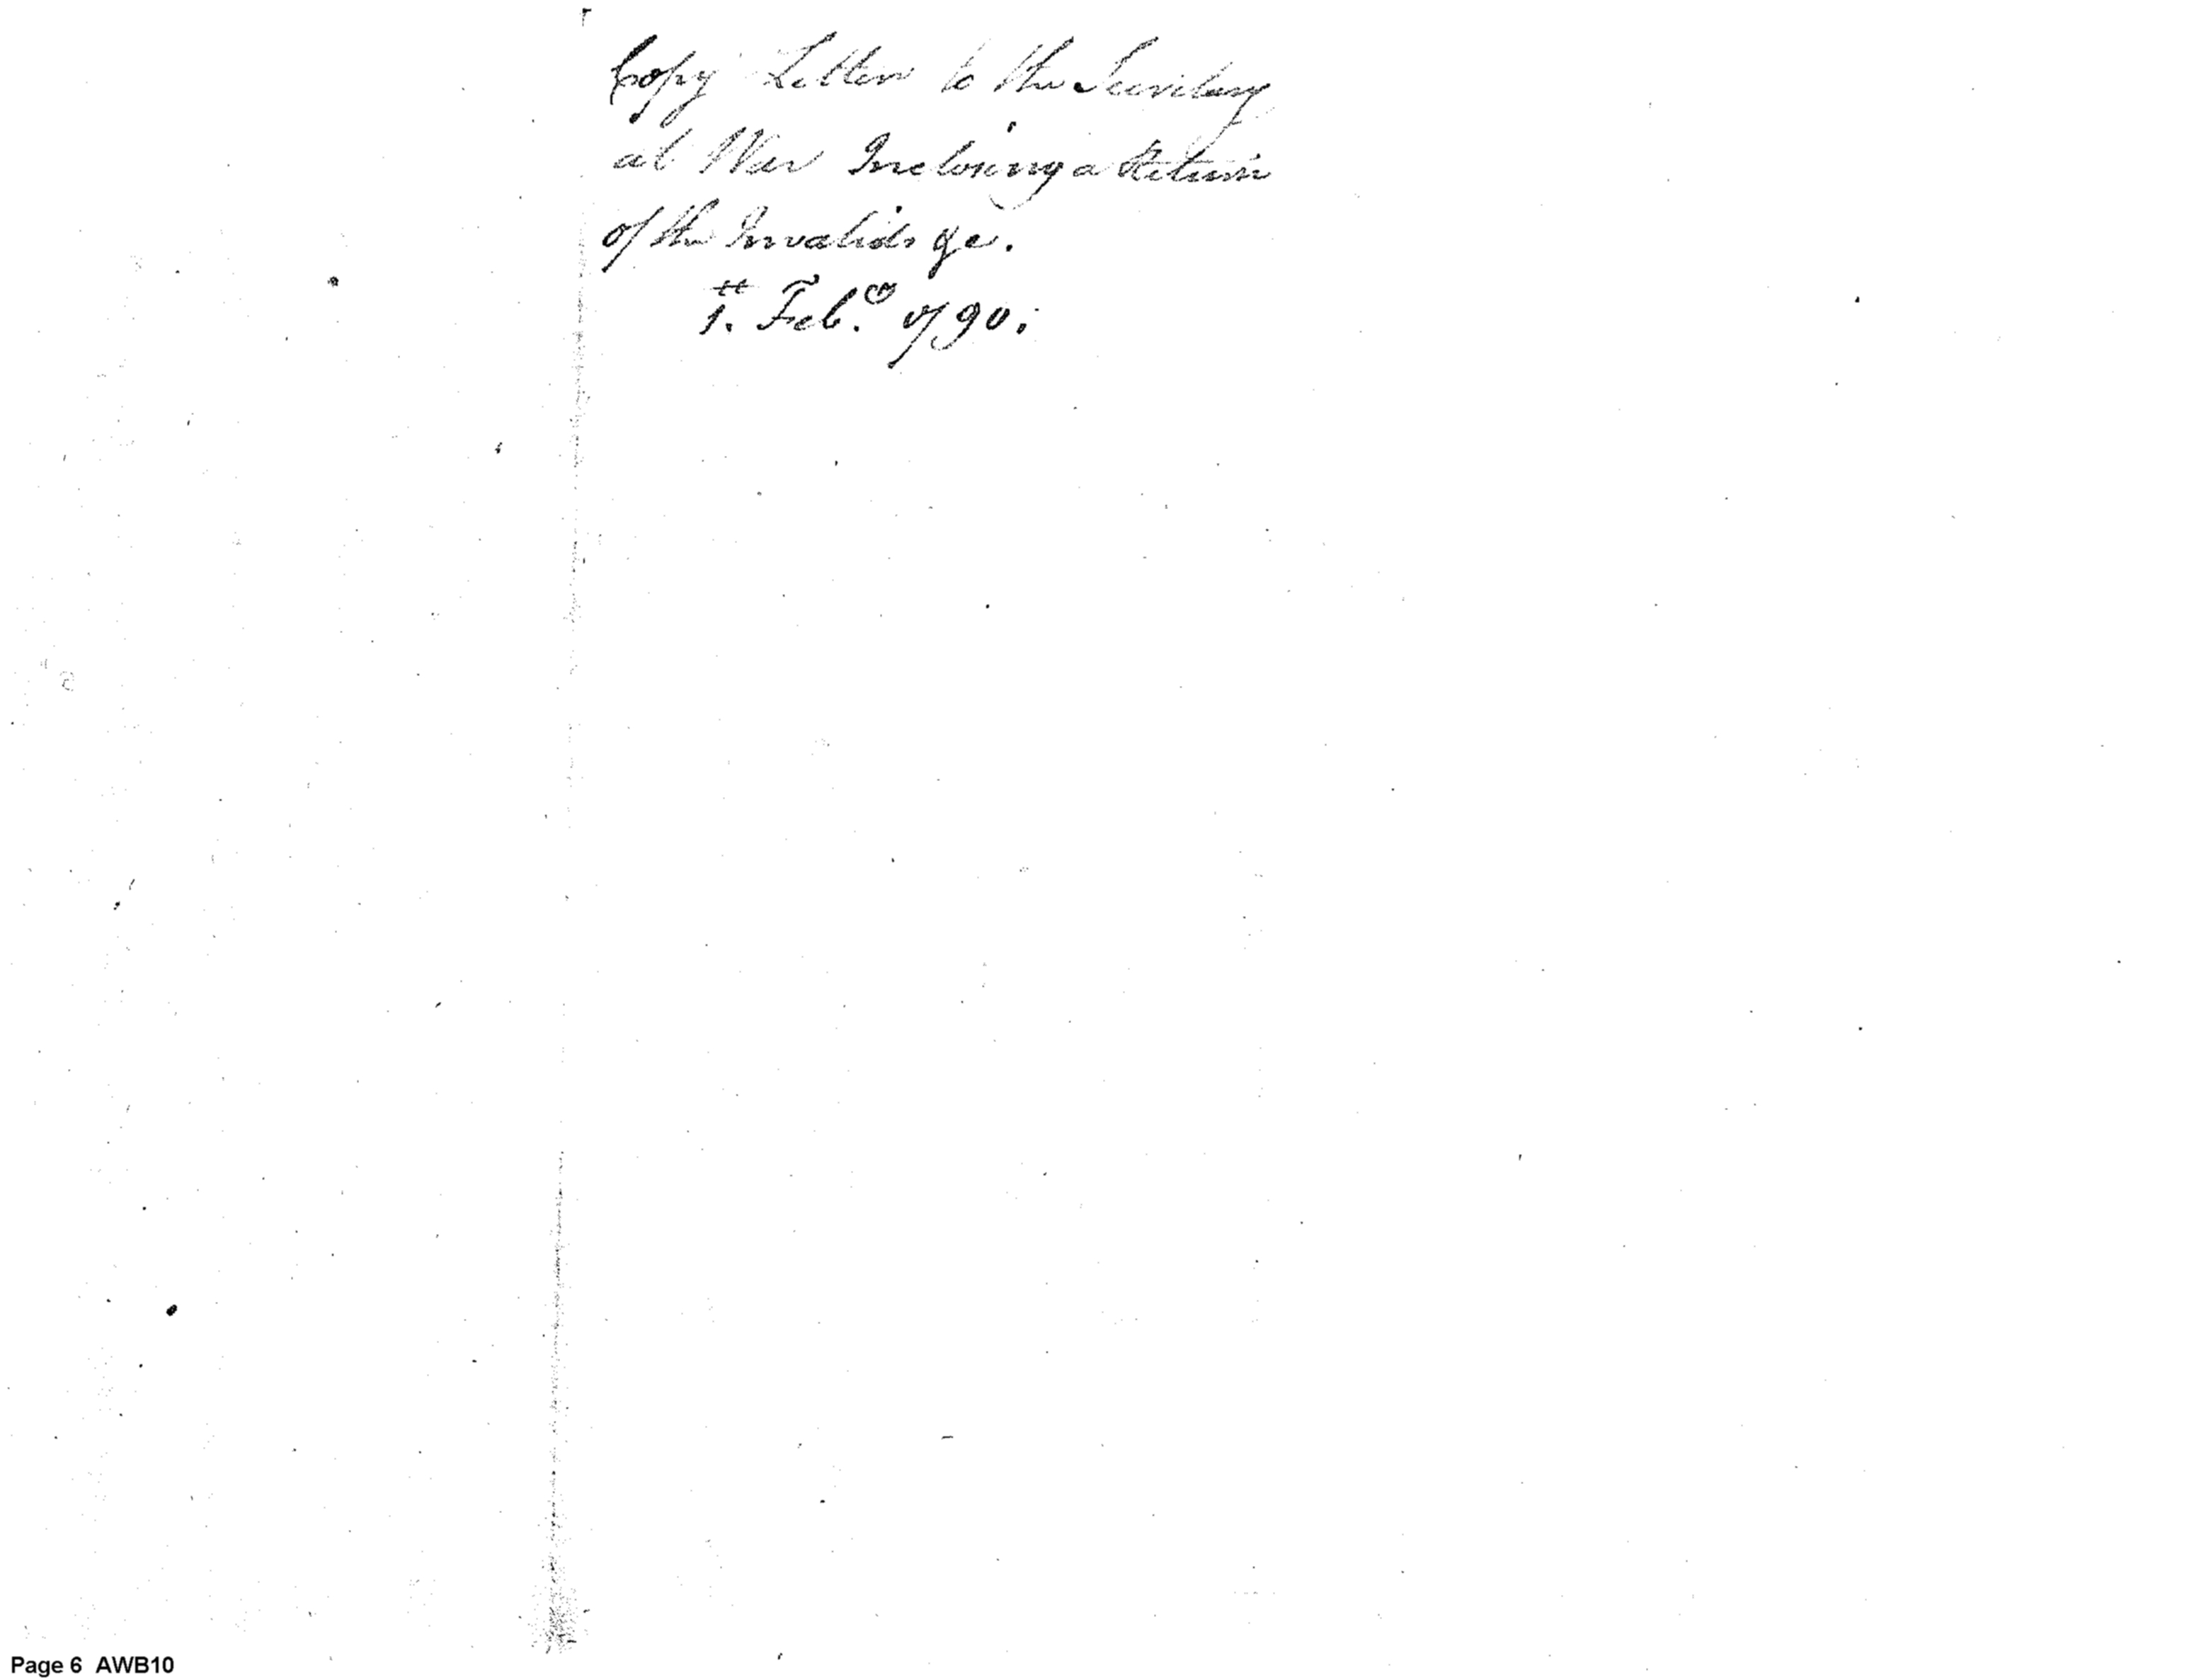 Copy Letter to the Secretary
at War Inclosing a Return
of the Invalids &c.
1st. Feby. 1790.
Page 6 AWB10